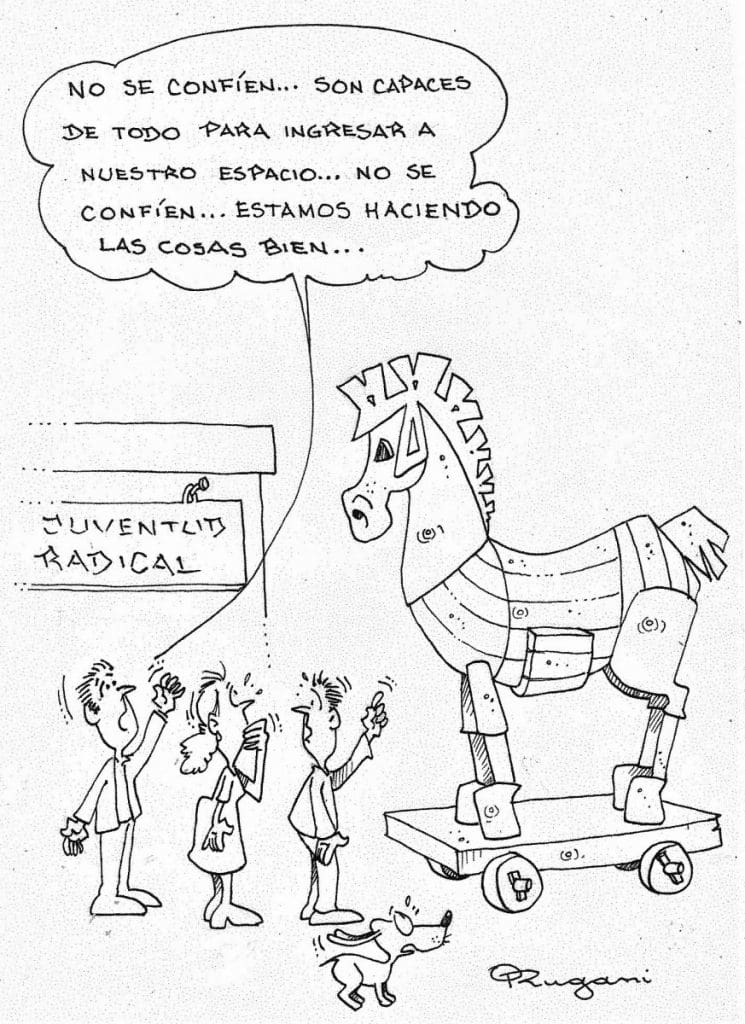 NO SE CONFÍEN... SON CAPACES
DE TODO PARA INGRESAR A
NUESTRO ESPACIO... NO SE
CONFÍEN... ESTAMOS HACIENDO
LAS COSAS BIEN...
JUVENTUD
RADICAL
Rugani